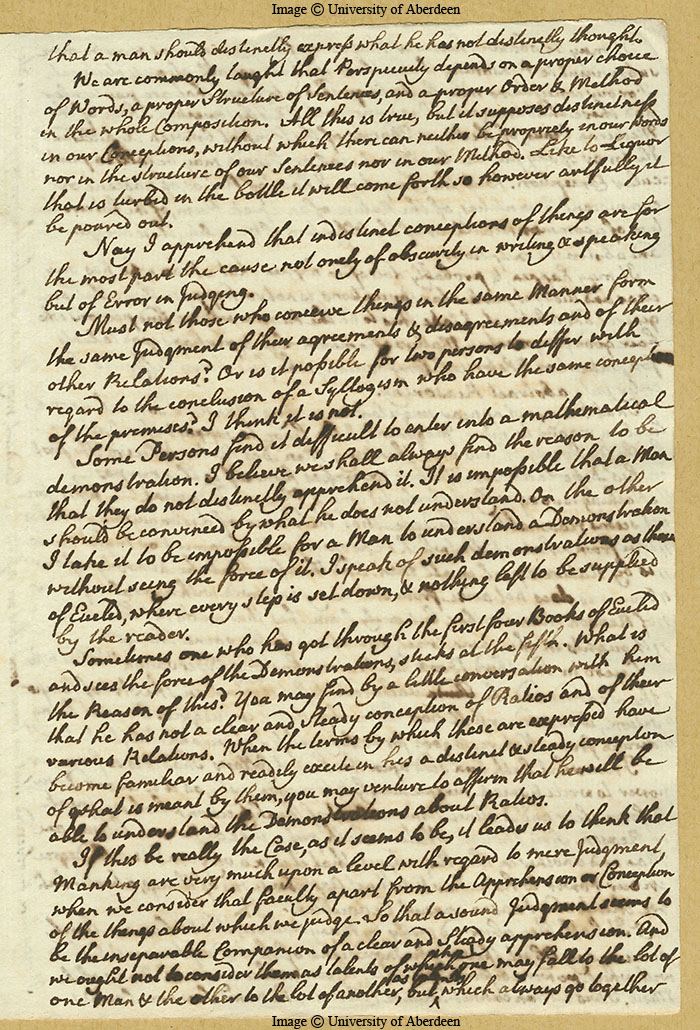 Image © University of Aberdeen
that a man should distinctly express what he has not distinctly thought.
We are commonly taught that Perspicuity depends on a proper choice
of Words, a proper Structure of Sentences, and a proper Order & Method
in the whole Composition. All this is true, but it supposes distinctness
in our Conceptions, without which there can neither be propriety in our Words
nor in the structure of our Sentences nor in our Method. Like to Liquor
that is turbid in the bottle it will come forth so however artfully it
be poured out.
Nay I apprehend that indistinct conceptions of things are for
the most part the cause not onely of obscurity in writing & speaking
but of Error in judging.
Must not those who conceive things in the same Manner form
the same Judgment of their agreements & disagreements and of their
other Relations? Or is it possible for two persons to differ with
regard to the conclusion of a Syllogism who have the same
of the premises? I think it is not.
Some Persons find it difficult to enter into a mathematical
demonstration. I believe we shall always find the reason to be
that they do not distinctly apprehend it. It is impossible that a Man
should be convinced by what he does not understand. On the other
I take it to be impossible for a Man to understand a Demonstration
without seing the force of it. I speak of such demonstrations as
of Euclid, where every step is set down, & nothing left to be supplied
by the reader.
Sometimes one who has got through the first four Books of Euclid
and sees the force of the Demonstrations, sticks at the fifth. What is
the Reason of this? You may find by a little conversation with him
that he has not a clear and steady conception of Ratios and of their
various Relations. When the terms by which these are expressed have
become familiar and readily excite in his a distinct & steady conception
of what is meant by them, you may venture to affirm that he will be
able to understand the Demonstrations about Ratios.
If this be really the Case, as it seems to be, it leads us to think that
Mankind are very much upon a level with regard to mere Judgment,
when we consider that faculty apart from the Apprehension or Conception
of the things about which we judge. So that a sound Judgment seems to
be the inseparable Companion of a clear and steady apprehension. And
we ought not to consider them as talents of which one may fall to the lot of
one Man & the other to the lot of another, but which always go together
Image © University of Aberdeen